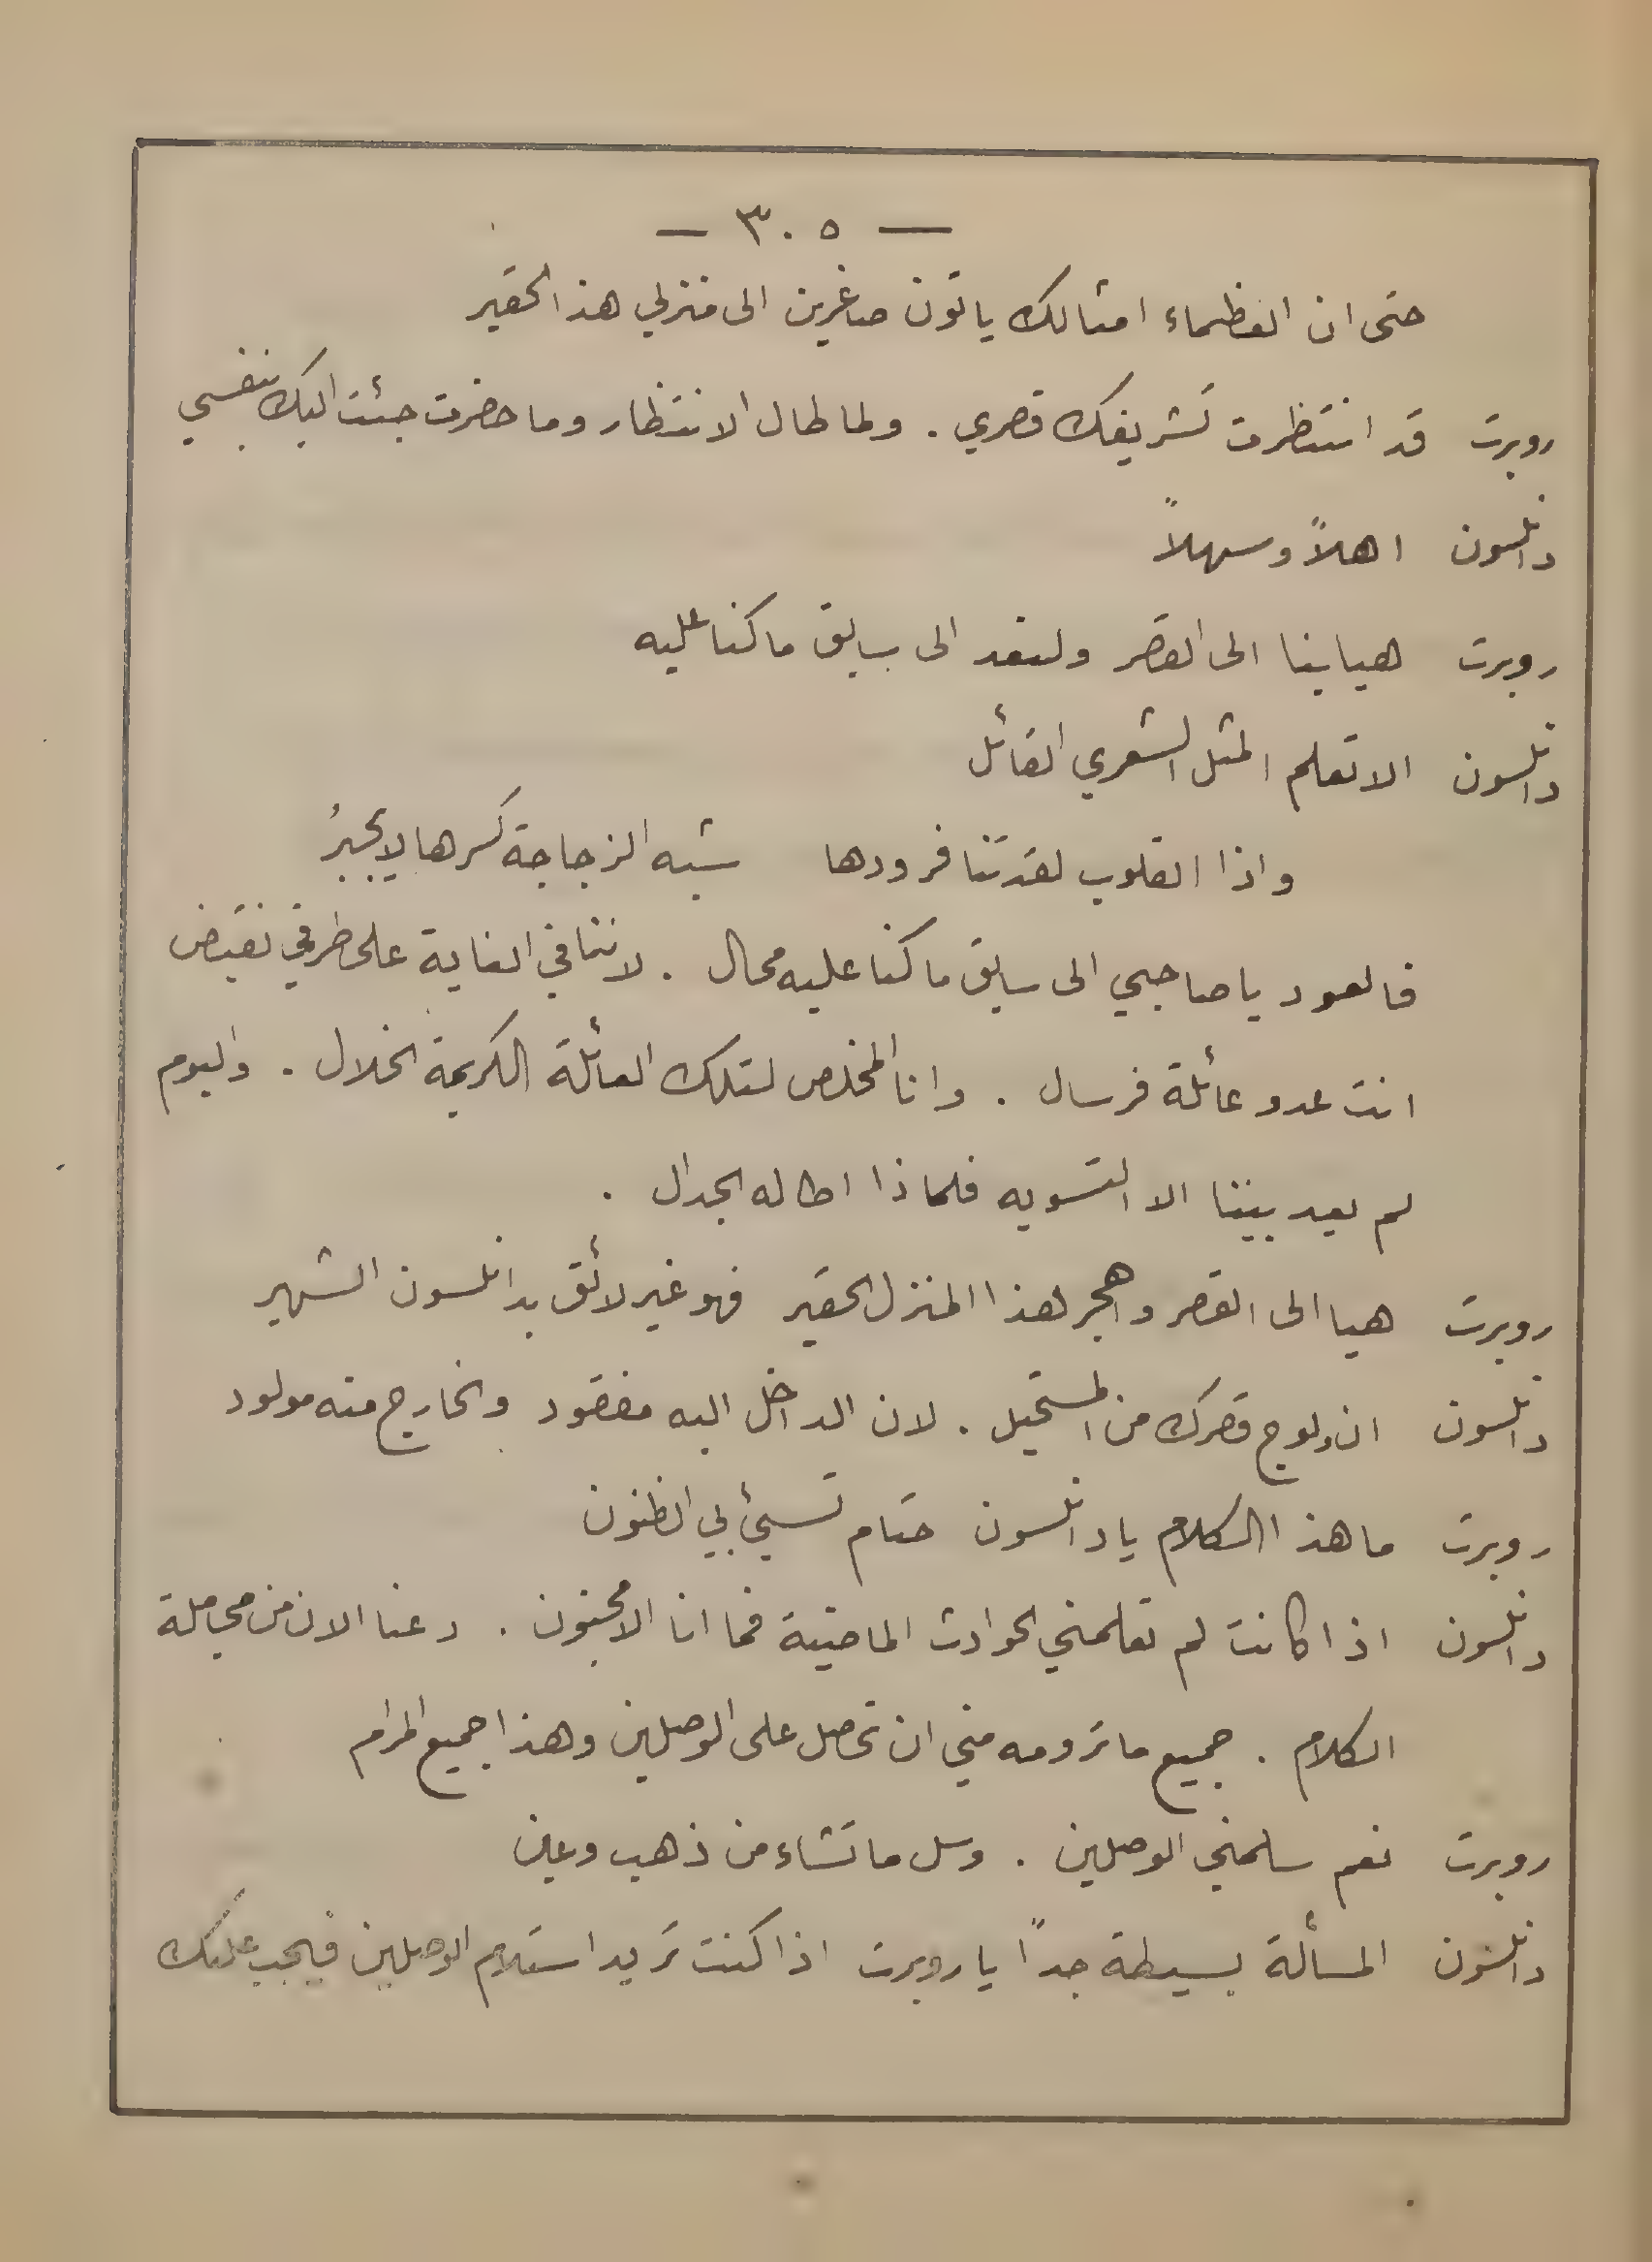 — ٣٠٥ —
حتى ان العظماء امثالك ياتون صاغرين الى منزلي هذا الحقير
روبرت قد انتظرت تشريفك قصري . ولما طال الانتظار وما حضرت جئت اليك بنفسي
دانلسون اهلاً وسهلاً
روبرت هيا بنا الى القصر ولنعد الى سابق ما كنا عليه
دانلسون الا تعلم المثل الشعري القائل
واذا القلوب لقد تنافر ودها شبه الزجاجة كسرها لا يجبرُ
فالعود يا صاحبي الى سابق ما كنا عليه محال . لاننا في الغاية على طرفي نقيض
انت عدو عائلة فرسال . وانا المخلص لتلك العائلة الكريمة الخلال . واليوم
لم يعد بيننا الا التسويه فلماذا اطاله الجدال .
روبرت هيا الى القصر واهجر هذا المنزل الحقير فهو غير لائق بدانلسون الشهير
دانلسون ان ولوج قصرك من المستحيل . لان الداخل اليه مفقود والخارج منه مولود
روبرت ما هذا الكلام يا دانلسون حتام تسيئ بي الظنون
دانلسون اذا كانت لم تعلمني الحوادث الماضية فما انا الا مجنون . دعنا الان من مجاملة
الكلام . جميع ما ترومه مني ان تحصل على الوصلين وهذا جميع المرام
روبرت نعم سلمني الوصلين . وسل ما تشاء من ذهب وعين
دانلسون المسألة بسيطة جداً يا روبرت اذا كنت تريد استلام الوصلين فيجب عليك